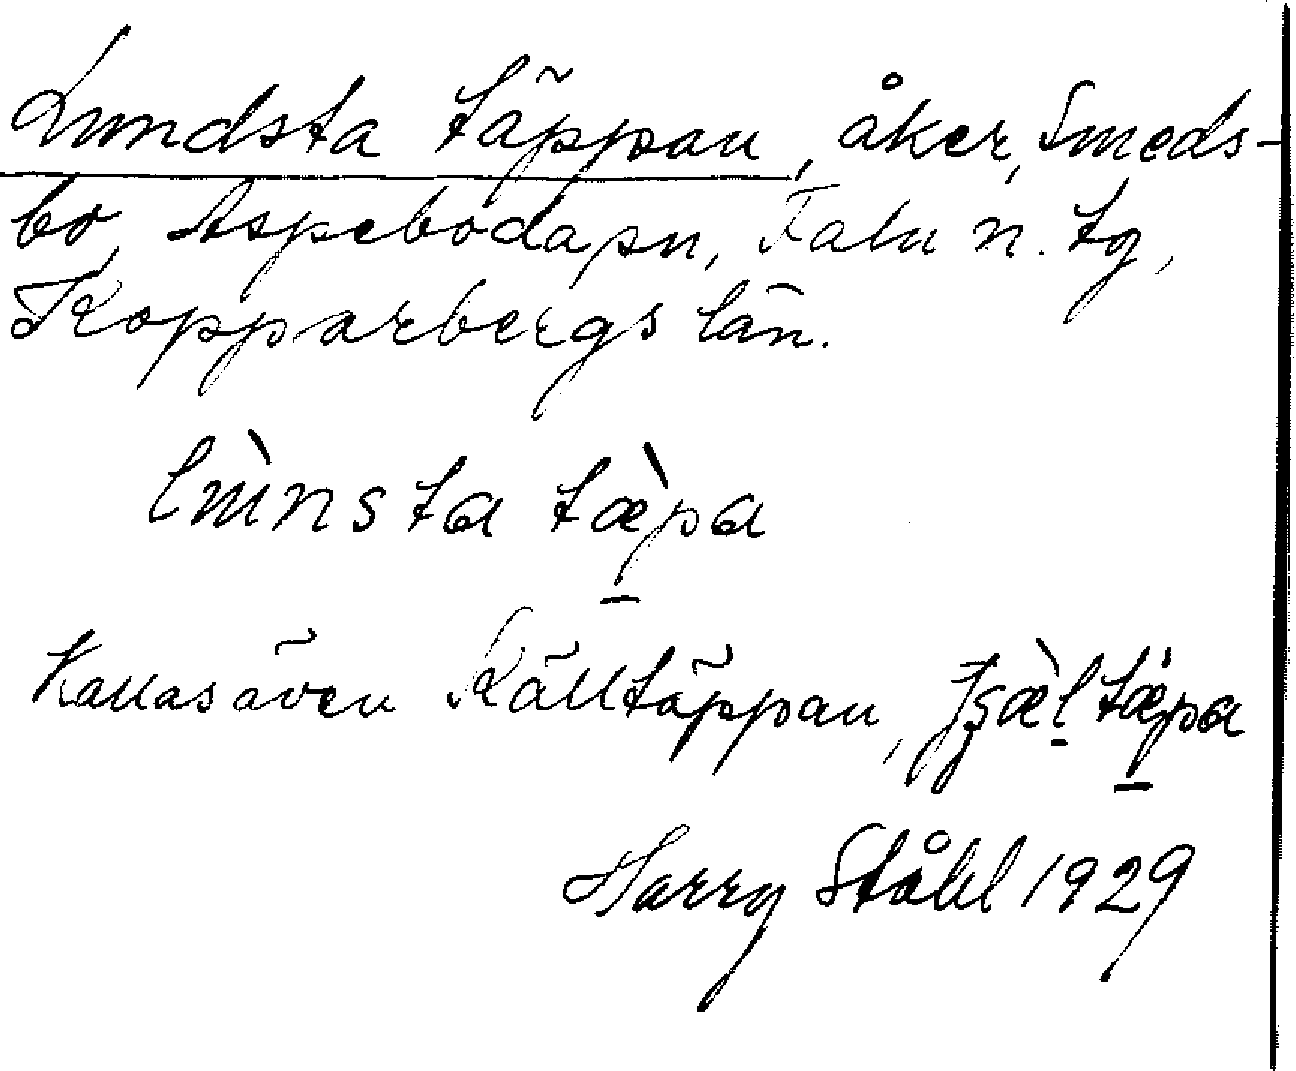 Lundsta täppan, åker, Smeds-
bo, Aspeboda sn, Falu n. tg,
Kopparbergs län.
lɯ̀nsta tæ̀pa
Kallas även Källtäppan,
Harry Ståhl 1929